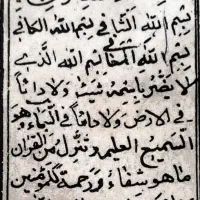 بسم الله الشافي بسم الله الكافي
بسم الله المعافي بسم الله الذي
لا يضر مع اسمه شيء ولا داء
في الارض ولا داء في السماء وهو
السميع العليم وننزل من القران
ما هو شفاء ورحمة للمومنين